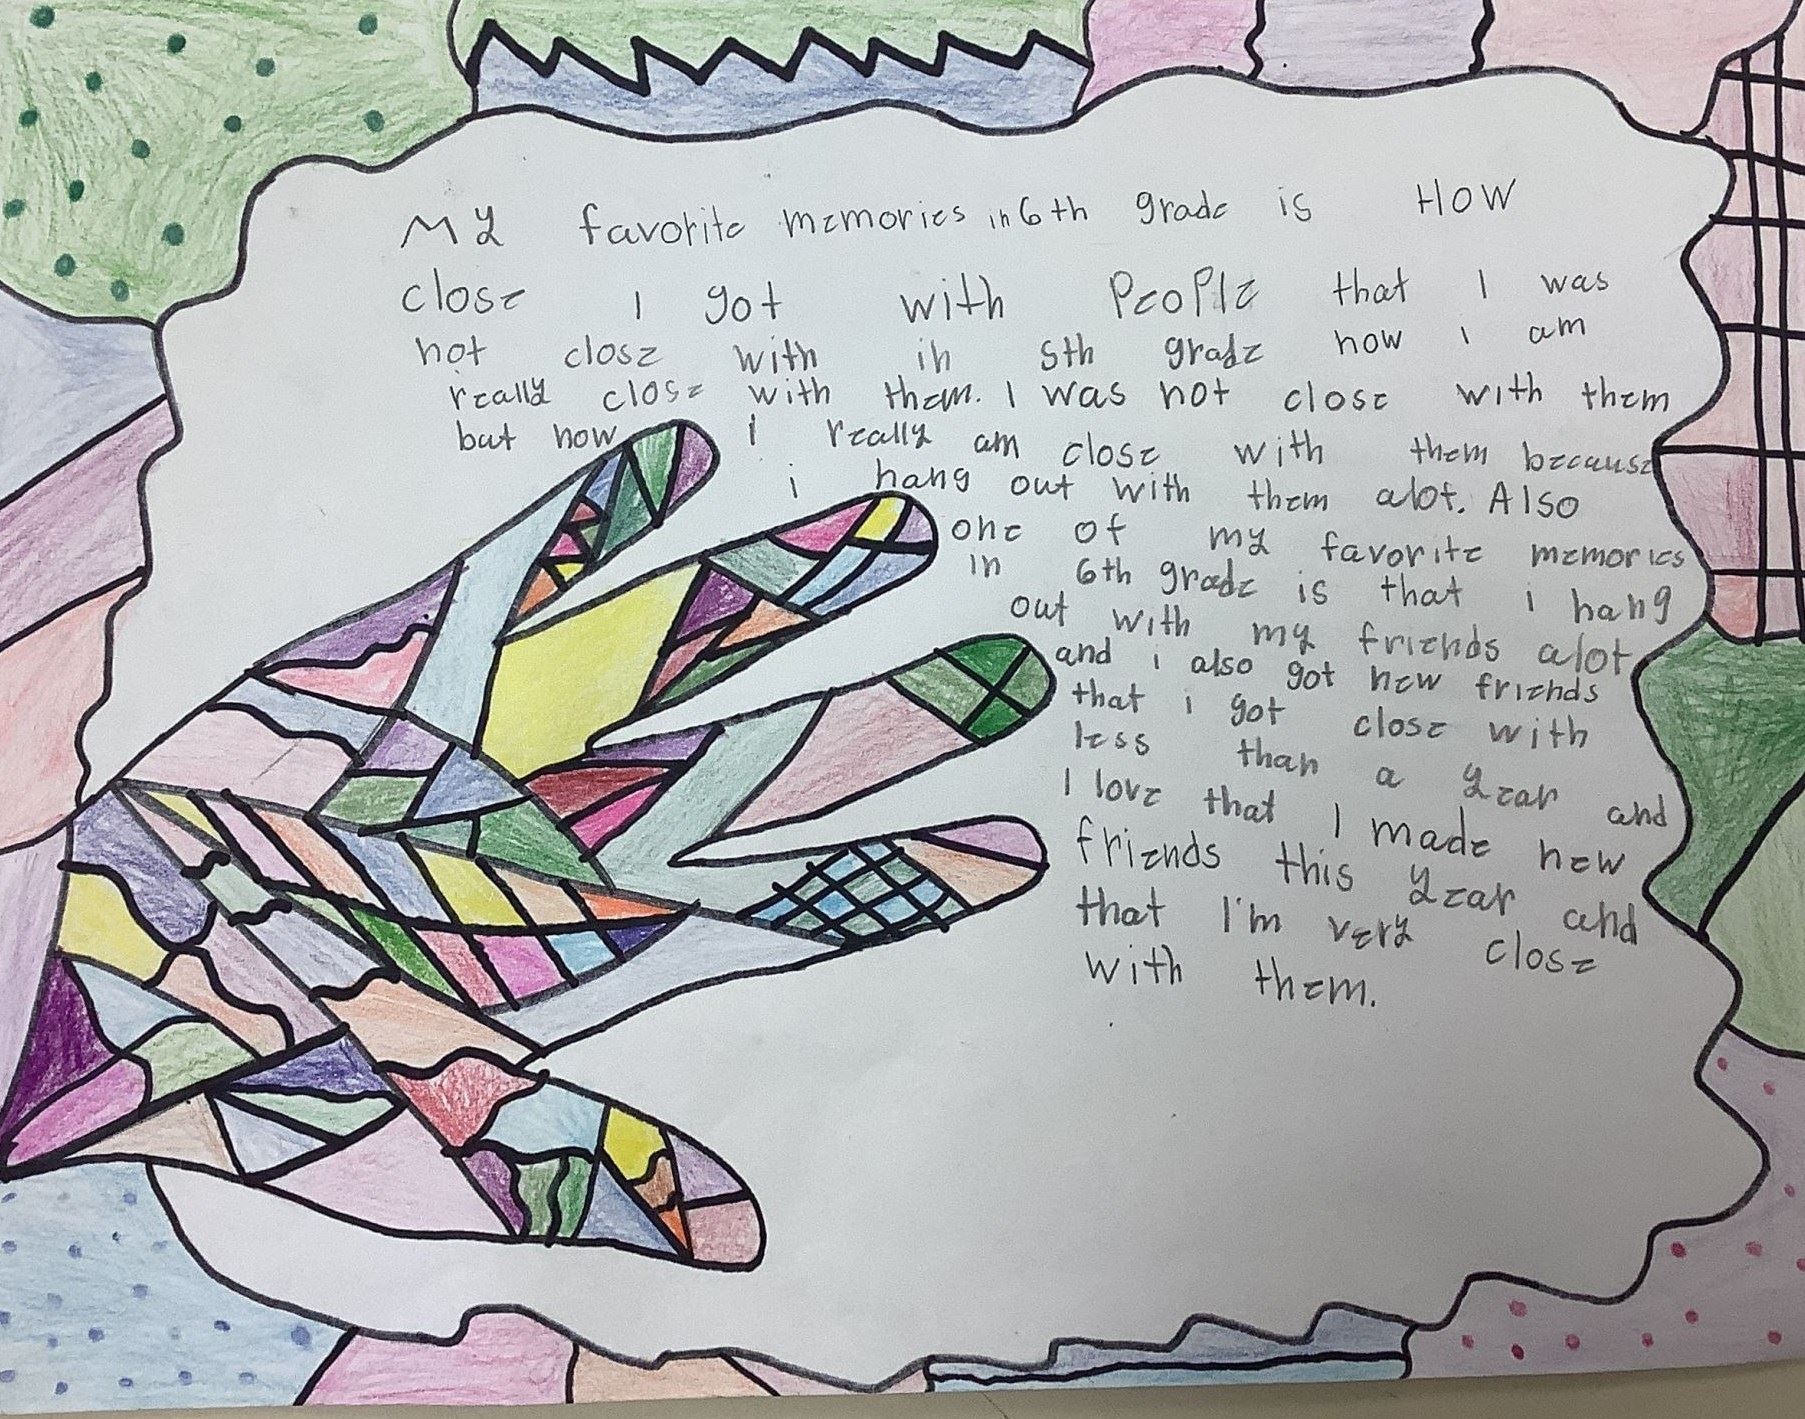 My favorite memories in 6th grade is How
close I got with People that I was
not close with in 5th grade now i am
really close with them. I was not close with them
but now I really am close with them because
i hang out with them alot. Also
one of my favorite memories
in 6th grade is that i hang
out with my friends alot
and i also got new friends
that i got close with
less than a year and
I love that I made new
friends this year and
that I'm very close
with them.